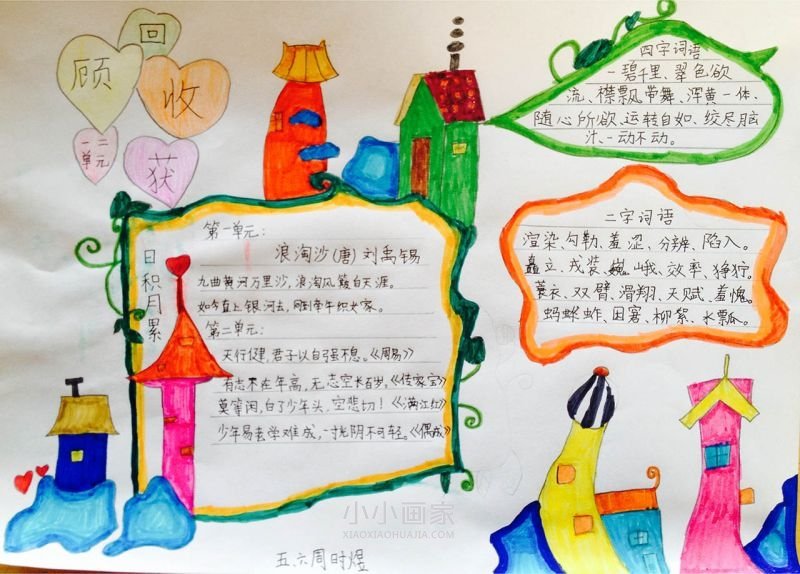 回
顾
收
获
一二
单元
日积月累
第一单元:
浪淘沙(唐)刘禹锡
九曲黄河万里沙,浪淘风簸自天涯。
如今直上银河去,同到牵牛织女家。
第二单元:
天行健,君子以自强不息。《周易》
有志不在年高,无志空长百岁。《传家宝》
莫等闲,白了少年头,空悲切!《满江红》
少年易老学难成,一寸光阴不可轻。《偶成》
四字词语
一碧千里、翠色欲
流、襟飘带舞、浑黄一体、
随心所欲、运转自如、绞尽脑
汁、一动不动。
二字词语
渲染、勾勒、羞涩、分辨、陷入。
矗立、戎装、巍峨、效率、狰狞。
蓑衣、双臂、滑翔、天赋、羞愧。
蚂蚱、困窘、柳絮、水瓢。
小小画家
XIAOXIAOHUAJIA.COM
五、六周时煜